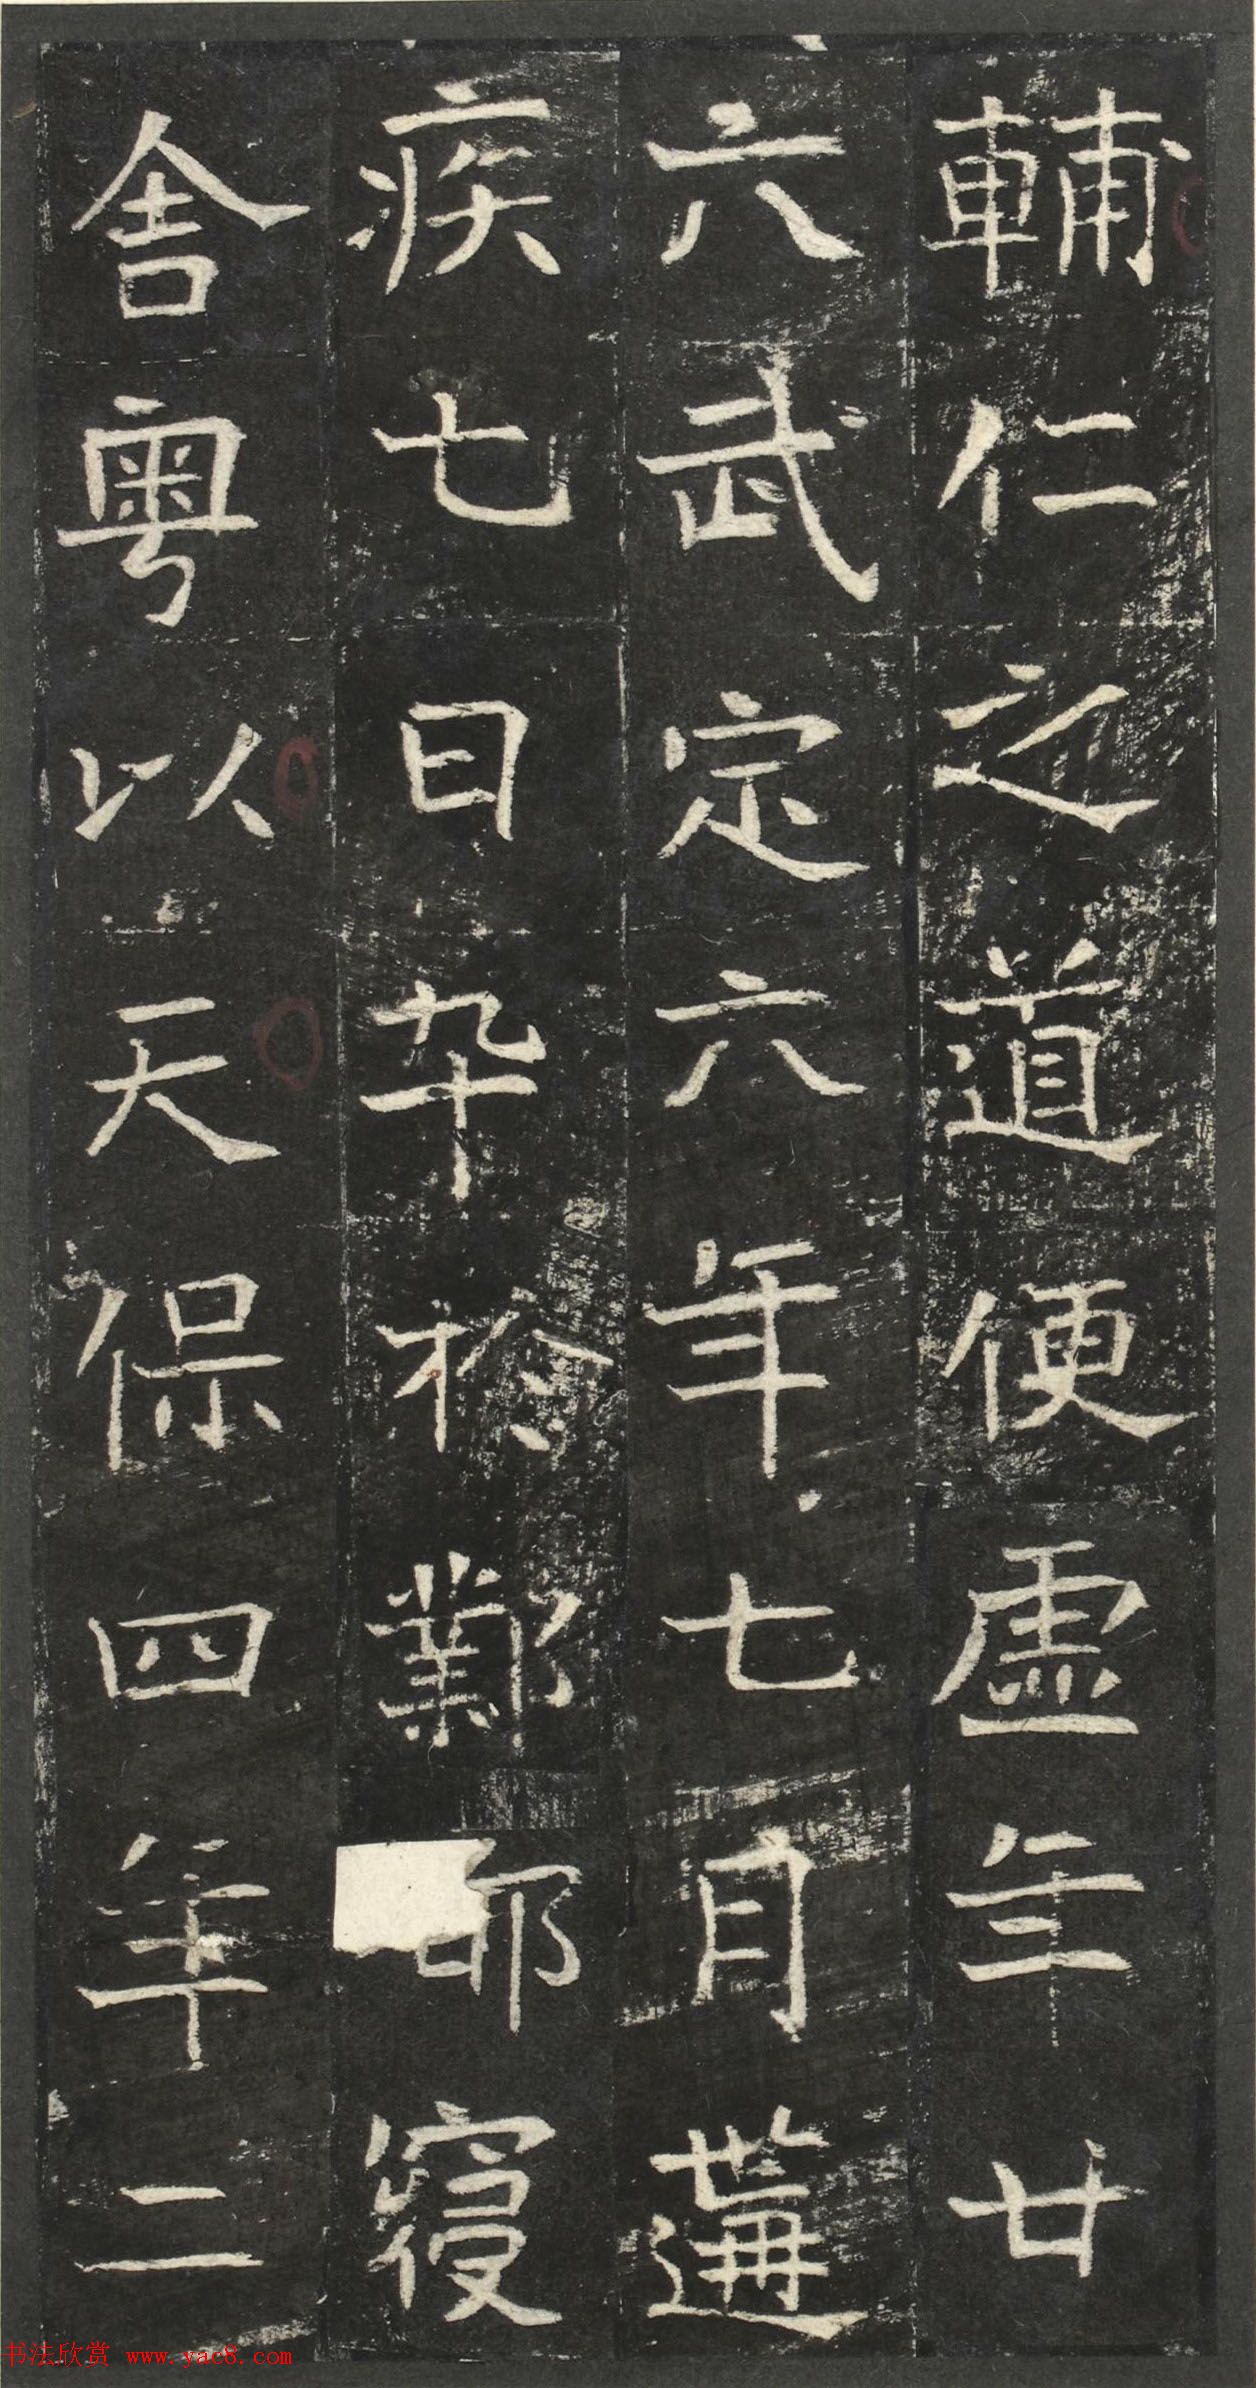 輔仁之道便虛年廿
六武定六年七月遘
疾七日卒於鄴都寢
舍粵以天保四年二
书法欣赏 www.yac8.com